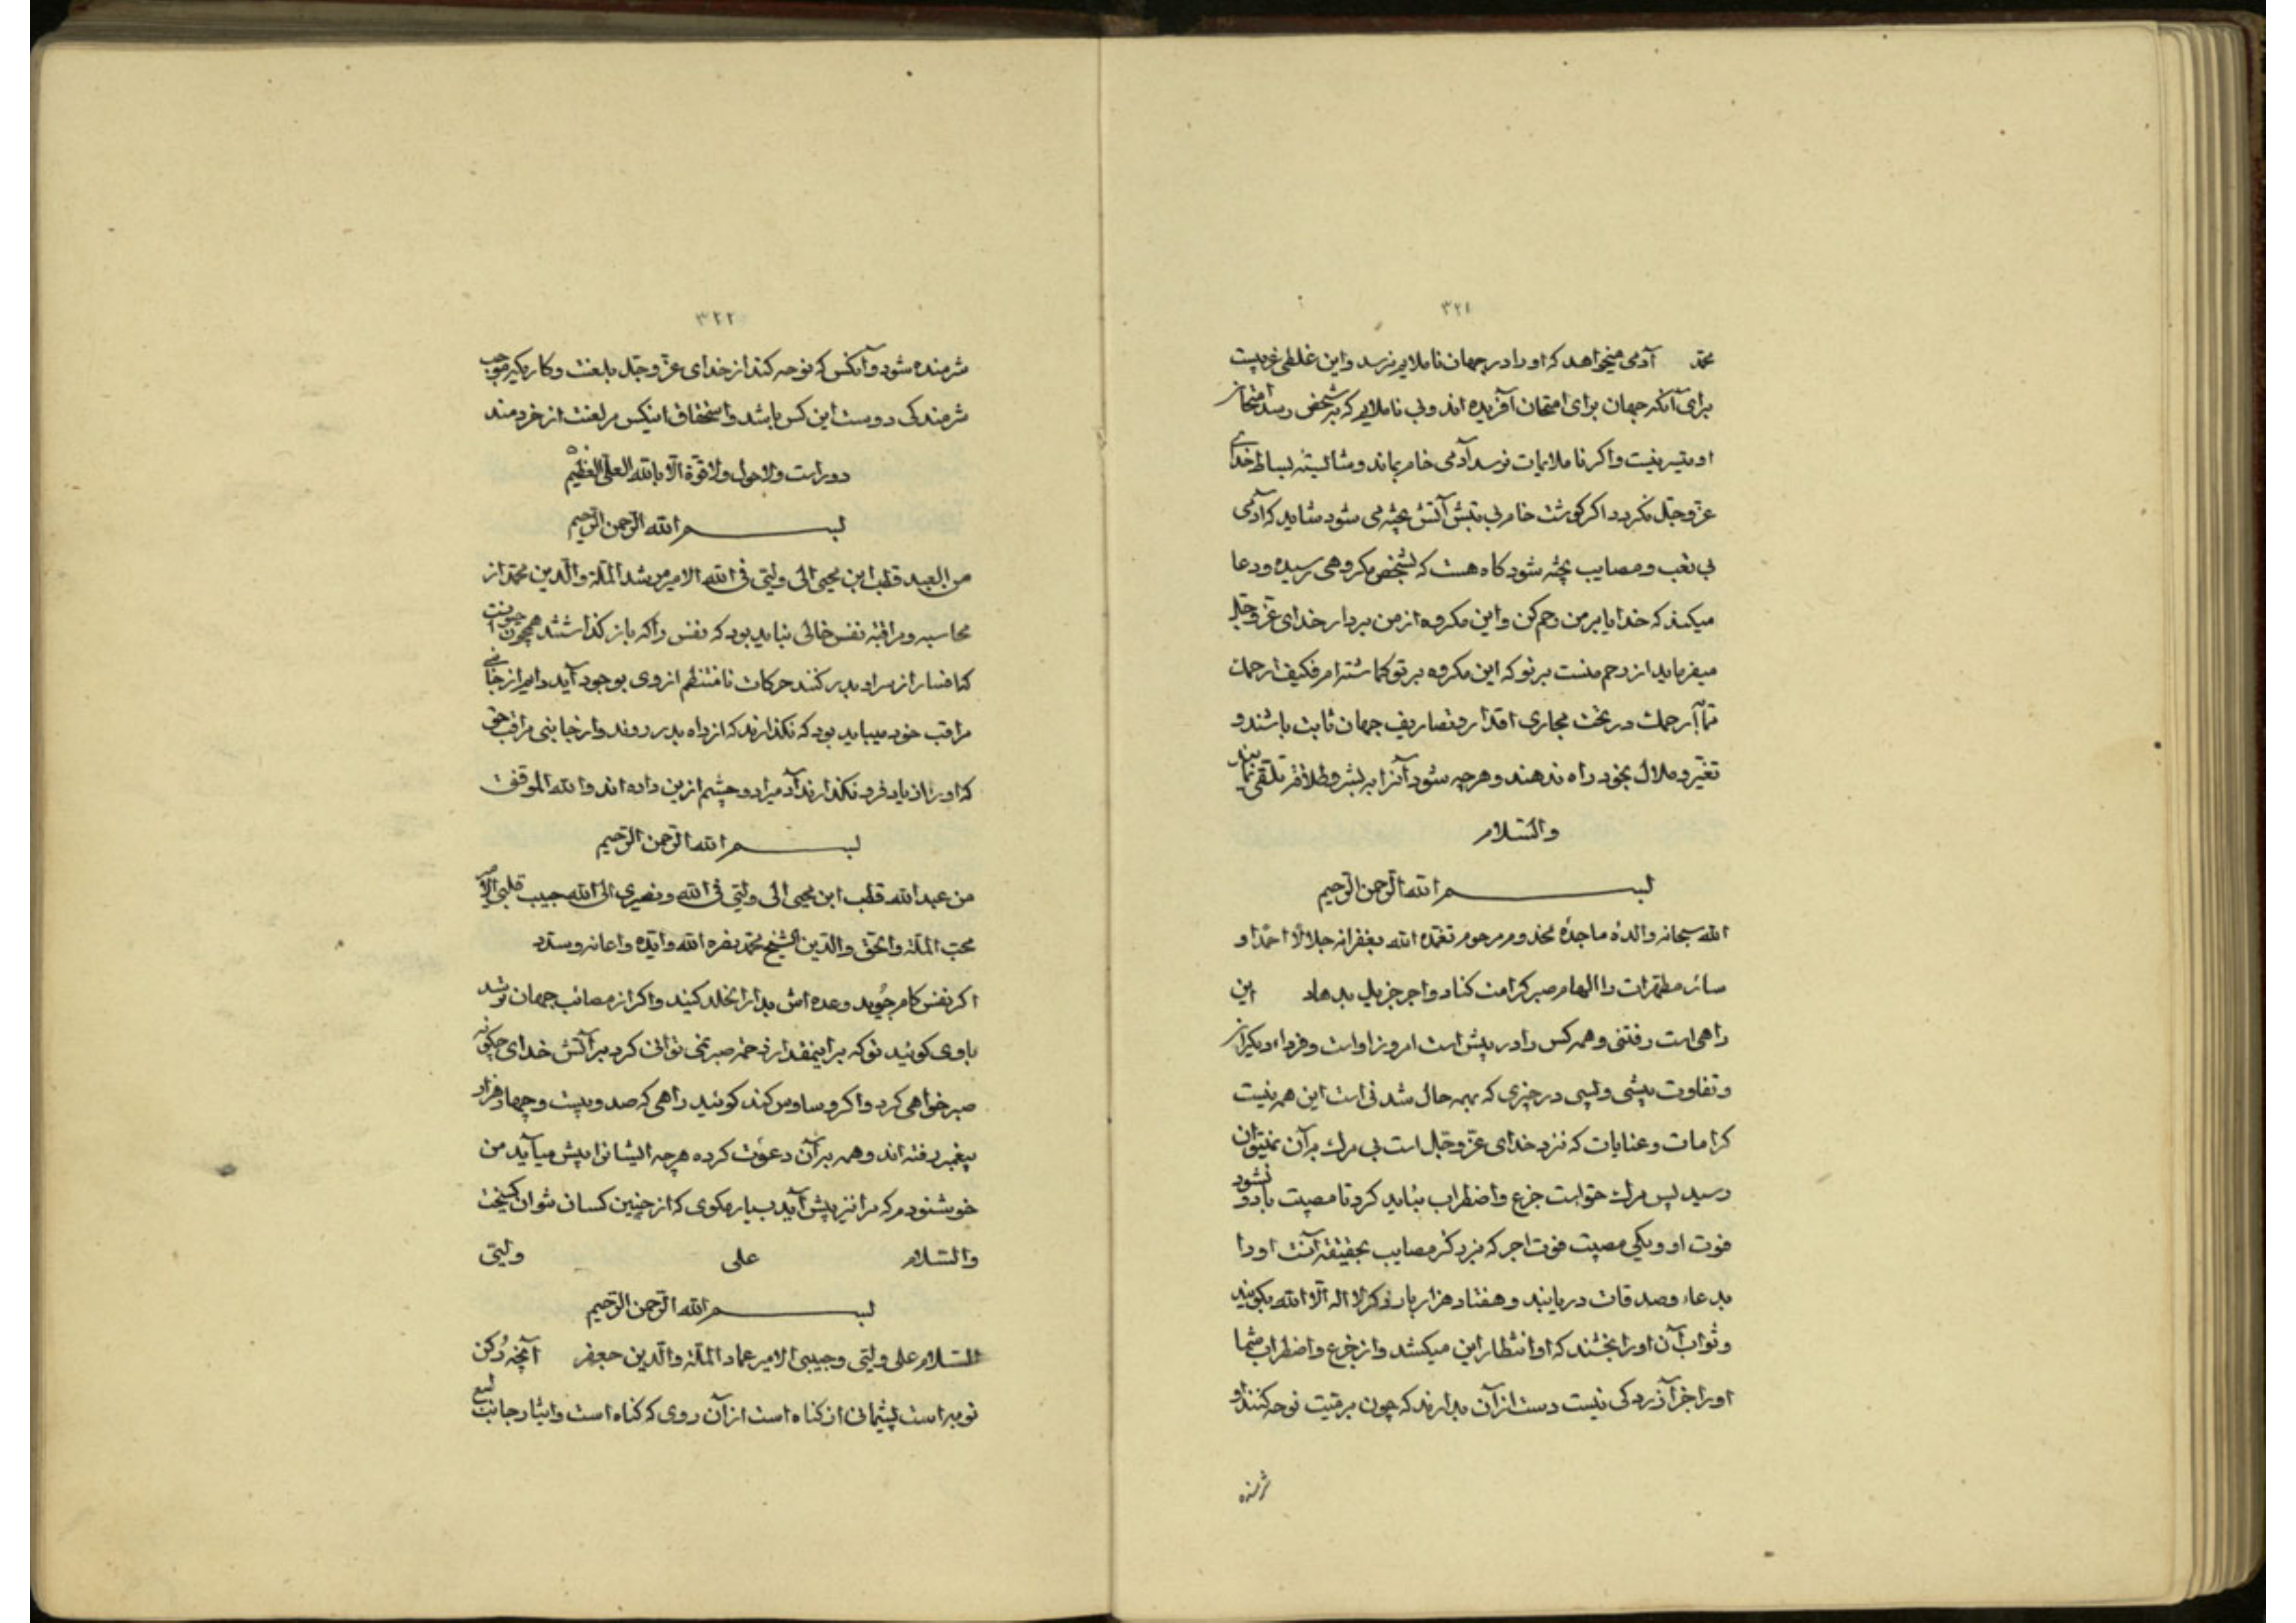 ۳۲۱
محمّد آدمی میخواهد که او را در جهان ناملایم نرسد و این غلطی غریبست
برای آنکه جهان برای امتحان آفریده‌اند و بی ناملایم که بر شخص رسد امتحان
او متیسر نیست و اگر ناملایمات نرسد آدمی خام بماند و شایسته بساط خدای
عزّ و جلّ نگردد اگر گوشت خام بی تبش آتش پخته می شود شاید که آدمی
بی تعب و مصایب پخته شود گاه هست که بشخص مکروهی رسیده و دعا
میکند که خدایا بر من رحم کن و این مکروه از من بردار خدای عزّ و جلّ
میفرماید از رحم منست بر تو که این مکروه بر تو گماشته‌ام فکیف ارحمک
تما ارحمک در تحت مجاری اقدار و تصاریف جهان ثابت باشند و
تغیّر و ملال بخود راه ندهند و هرچه شود آنرا به بشر و طلاقة تلقّی نمایند
والسّلام
بسم الله الرّحمن الرّحیم
الله سبحانه والدهٔ ماجدهٔ مخدوم مرحوم تغمّده الله بغفرانه جلالا احمدا و
سائر مطهّرات را الهام صبر کرامت کناد و اجر جزیل بدهاد این
راهی است رفتنی و همه کس را در پیش است امروز او است و فردا دیگران
و تفاوت پیشی و پسی در چیزی که بهمه حال شدنی است این همه نیست
کرامات و عنایات که نزد خدای عزّ و جلّ است بی مرگ بر آن نمیتوان
رسید پس مرگ حق است جزع و اضطراب نباید کرد تا مصیبت با دو نشود
فوت او و یکی مصیبت فوت اجر که بزرگتر مصایب بحقیقة آنست او را
بدعاء و صدقات دریابند و هفتاد هزار بار ذکر لا اله الّا الله بگویند
و ثواب آن او را بخشند که او انتظار این میکشد و از جزع و اضطراب شما
او را جز آزردگی نیست دست از آن بدارند که چون بر میّت نوحه کنند او
شرمنده
۳۲۲
شرمنده شود و آنکس که نوحه کند از خدای عزّ و جلّ بلعنت و کاریکه موجب
شرمندگی دوست این کس باشد و استحقاق اینکس مر لعنت از خردمند
دور است ولا حول ولا قوّة الّا بالله العلیّ العظیم
بسم الله الرّحمن الرّحیم
من العبد قطب ابن محیی الی ولیّی فی الله الامیر مرشد الملّة والدّین محمّد از
محاسبه و مراقبه نفس خالی نباید بود که نفس را که باز گذاشتند همچون
که افسار از سر او بدر کنند حرکات نامنتظم از وی بوجود آید دایم از جانبی
مراقب خود میباید بود که نگذارند که از راه بدر روند و از جانبی مراقب حق
که او را از یاد فرو نگذارند آدمی را دو چشم از این داده‌اند والله الموفّق
بسم الله الرّحمن الرّحیم
من عبدالله قطب ابن محیی الی ولیّی فی الله و نصیری الی الله حبیب قلبی الامیر
محبّ الملّة والحقّ والدّین الشیخ محمّد نصره الله و ایّده و اعانه و سدّد
اگر نفس کام جوید وعده‌اش بدار الخلد کنید و اگر از مصائب جهان ترشد
باوی گوئید تو که بر اینمقدار زحمة صبر نمی توانی کرد بر آتش خدای چگونه
صبر خواهی کرد و اگر وساوس کند گوئید راهی که صد و بیست و چهار هزار
پیغمبر رفته‌اند و همه بر آن دعوت کرده هرچه ایشانرا پیش میآید من
خوشنودم که مرا نیز پیش آید بسیار مگوی که از چنین کسان نتوان گسیخت
والسّلام علی ولیّی
بسم الله الرّحمن الرّحیم
السّلام علی ولیّی و حبیبی الامیر عماد الملّة والدّین جعفر آنچه رکن
توبه است پشیمانی از گناه است از آن روی که گناه است و ایثار جانب